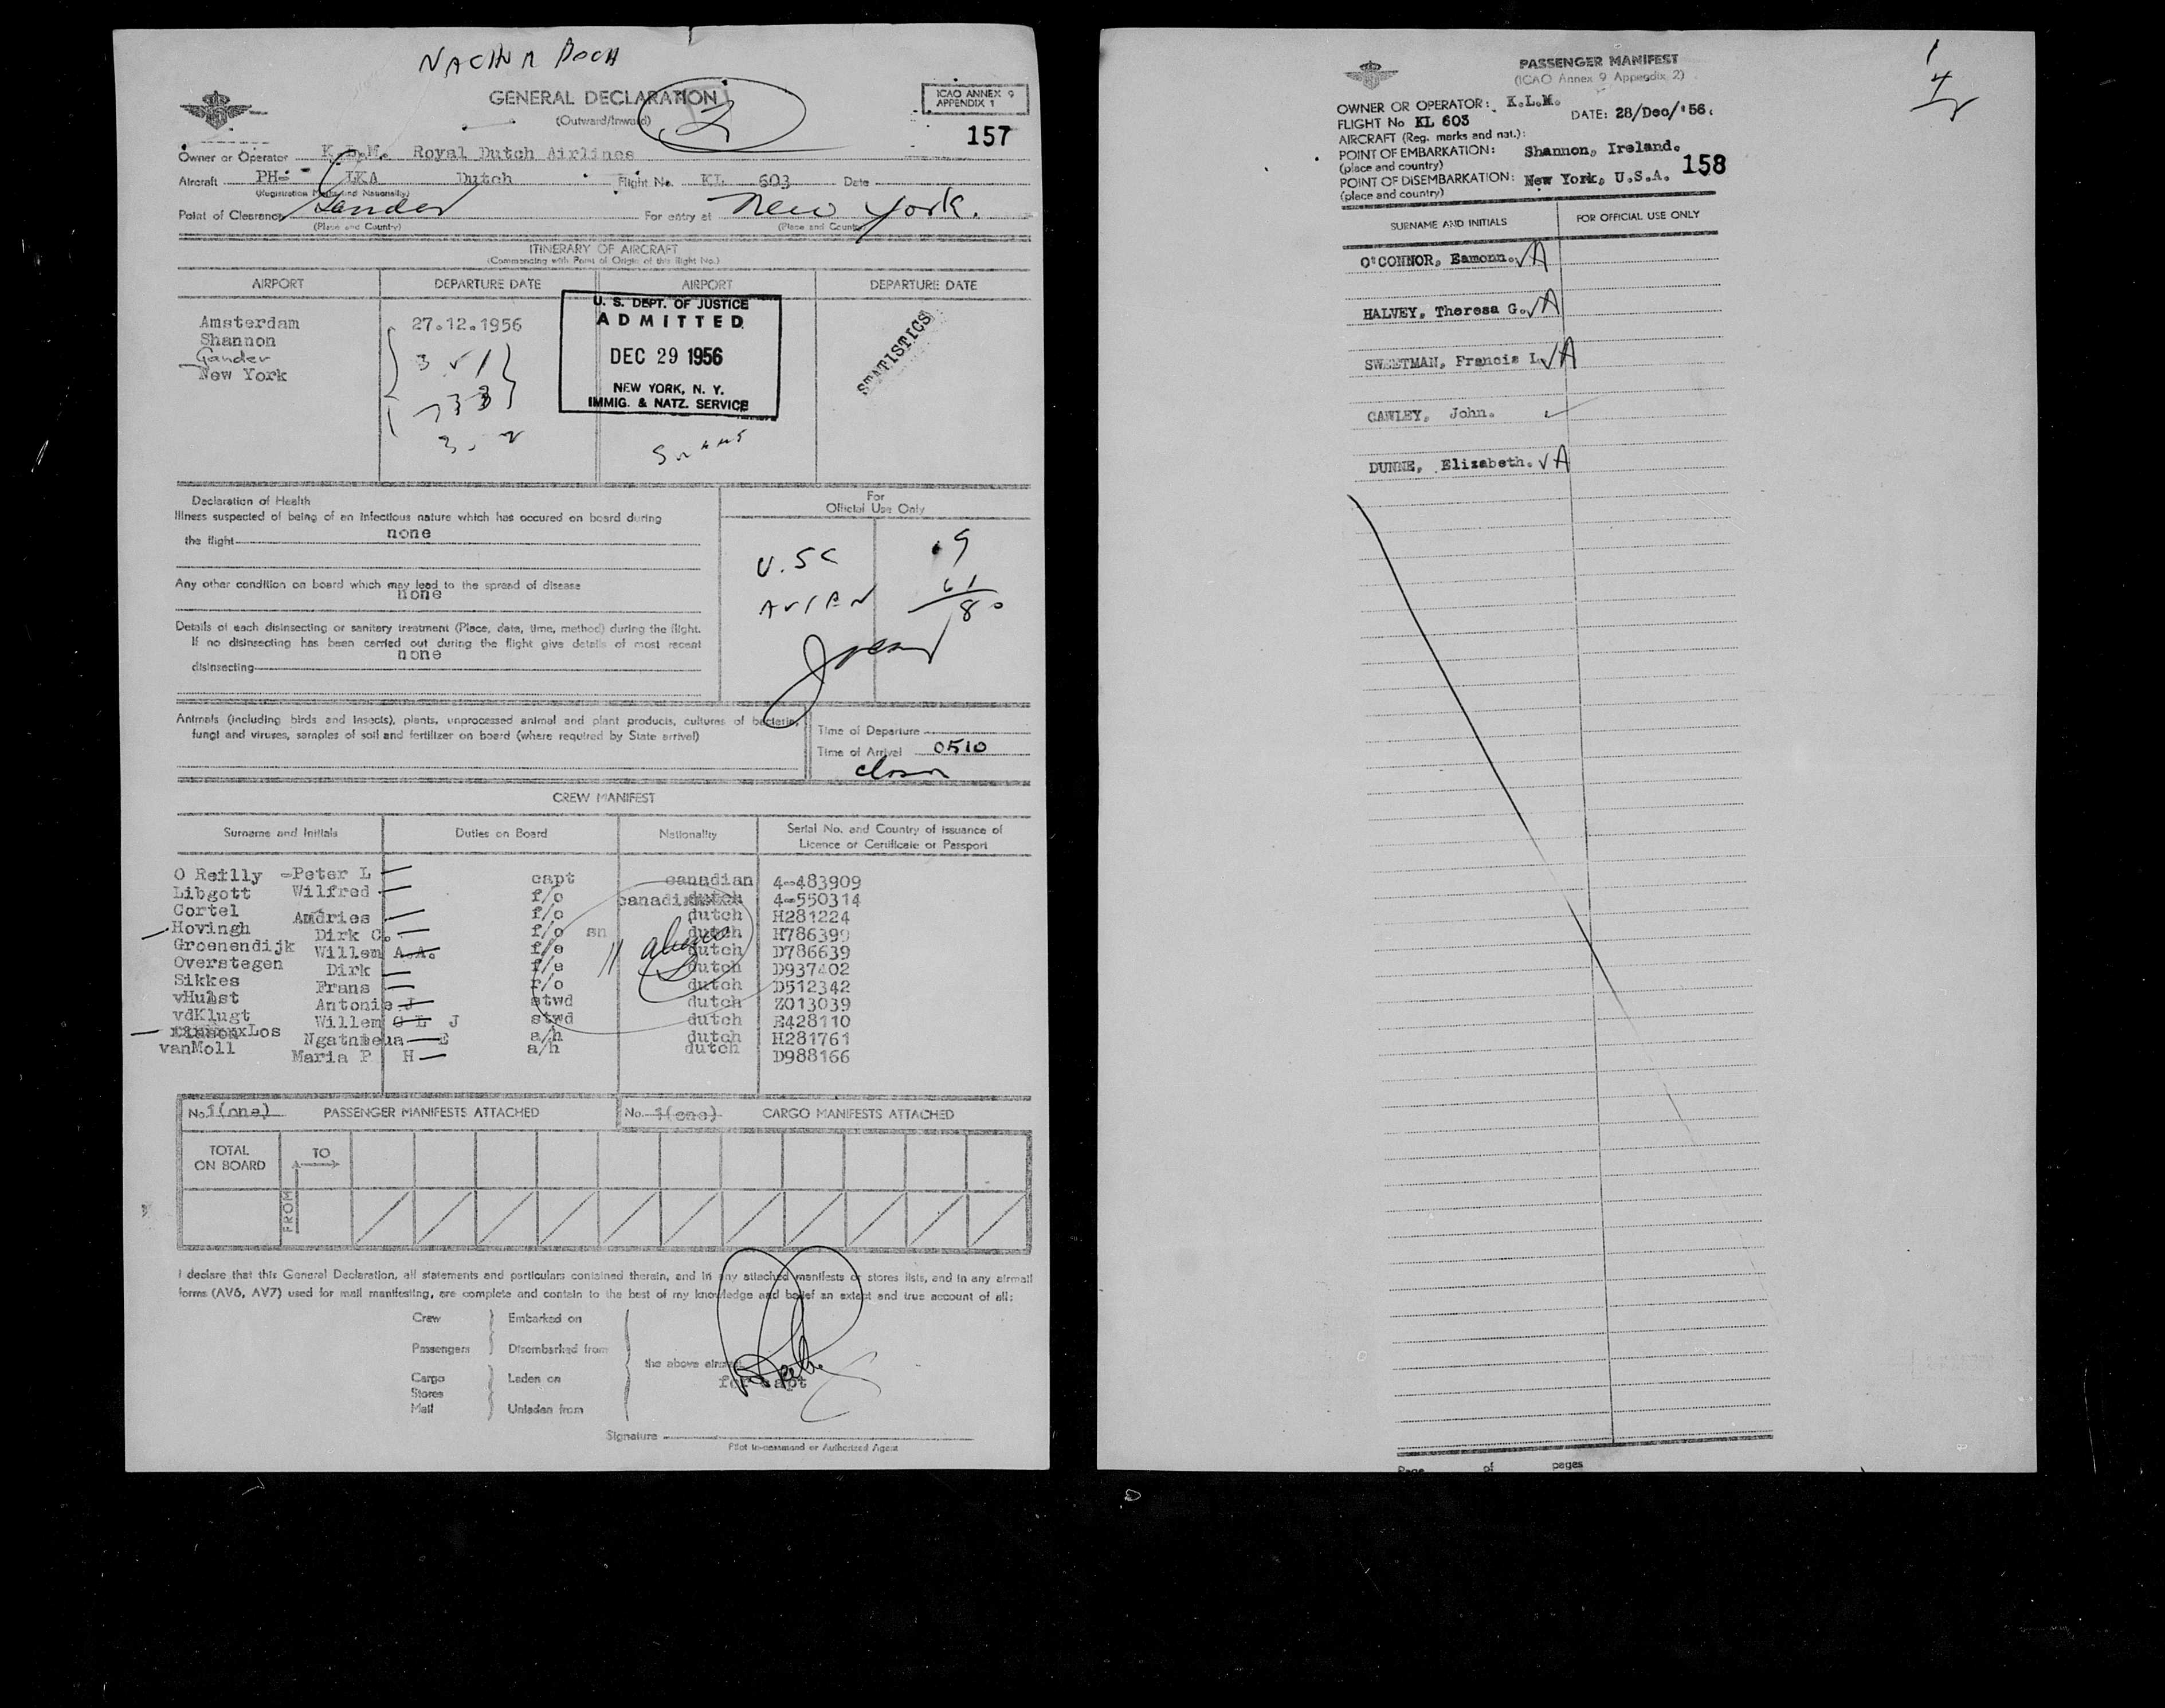 GENERAL DECLARATION
(Outward/Inward)
2
ICAO ANNEX 9
APPENDIX 1
157
Owner or Operator K.L.M. Royal Dutch Airlines
Aircraft PH- LKA Dutch Flight No. KL 603 Date
(Registration Marks and Nationality)
Point of Clearance Gander For entry at New York.
(Place and Country) (Place and Country)
ITINERARY OF AIRCRAFT
(Commencing with Point of Origin of this flight No.)
AIRPORT DEPARTURE DATE AIRPORT DEPARTURE DATE
Amsterdam 27.12.1956
Shannon
Gander
New York
U. S. DEPT. OF JUSTICE
ADMITTED
DEC 29 1956
NEW YORK, N. Y.
IMMIG. & NATZ. SERVICE
STATISTICS
Declaration of Health
Illness suspected of being of an infectious nature which has occured on board during
the flight none
Any other condition on board which may lead to the spread of disease
none
Details of each disinsecting or sanitary treatment (Place, date, time, method) during the flight.
If no disinsecting has been carried out during the flight give details of most recent
none
disinsecting
For
Official Use Only
U.SC 9
61
80
Animals (including birds and insects), plants, unprocessed animal and plant products, cultures of bacteria,
fungi and viruses, samples of soil and fertilizer on board (where required by State arrival)
Time of Departure
Time of Arrival 0510
CREW MANIFEST
Surname and Initials Duties on Board Nationality Serial No. and Country of Issuance of
Licence or Certificate or Passport
O Reilly -Peter L capt canadian 4-483909
Libgott Wilfred f/o canadian 4-550314
Cortel Andries f/o dutch H281224
Hovingh Dirk C. f/o sn dutch H786399
Groenendijk Willem A.A. f/e dutch D786639
Overstegen Dirk f/e dutch D937402
Sikkes Frans r/o dutch D512342
vHulst Antonie J stwd dutch Z013039
vdKlugt Willem C L J stwd dutch E428110
Los E a/h dutch H281761
vanMoll Maria P H a/h dutch D988166
No. 1(one) PASSENGER MANIFESTS ATTACHED No. 1(one) CARGO MANIFESTS ATTACHED
TOTAL
ON BOARD
TO
FROM
I declare that this General Declaration, all statements and particulars contained therein, and in any attached manifests or stores lists, and in any airmail
forms (AV6, AV7) used for mail manifesting, are complete and contain to the best of my knowledge and belief an extact and true account of all:
Crew Embarked on
Passengers Disembarked from
the above aircraft
Cargo Laden on
Stores
Mail Unladen from
for capt
Signature
Pilot in-command or Authorized Agent
PASSENGER MANIFEST
(ICAO Annex 9 Appendix 2)
OWNER OR OPERATOR: K.L.M.
FLIGHT No KL 603 DATE: 28/Dec/'56.
AIRCRAFT (Reg. marks and nat.):
POINT OF EMBARKATION: Shannon, Ireland.
(place and country)
POINT OF DISEMBARKATION: New York, U.S.A. 158
(place and country)
SURNAME AND INITIALS FOR OFFICIAL USE ONLY
O'CONNOR, Eamonn. √A
HALVEY, Theresa G. √A
SWEETMAN, Francis L √A
CAWLEY, John. √
DUNNE, Elizabeth. √A
Page of pages